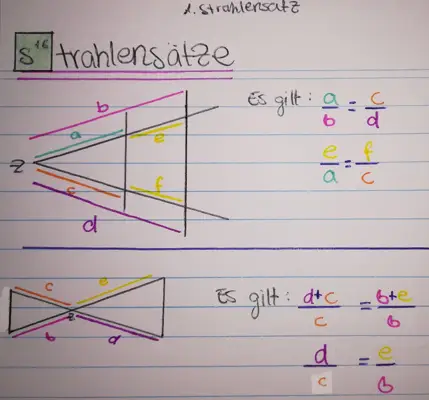 1. Strahlensatz
S16 trahlensätze
b
a
e
Es gilt: a/b = c/d
z
c
f
e/a = f/c
d
c
e
z
b
d
Es gilt: d+c/c = b+e/b
d/c = e/b